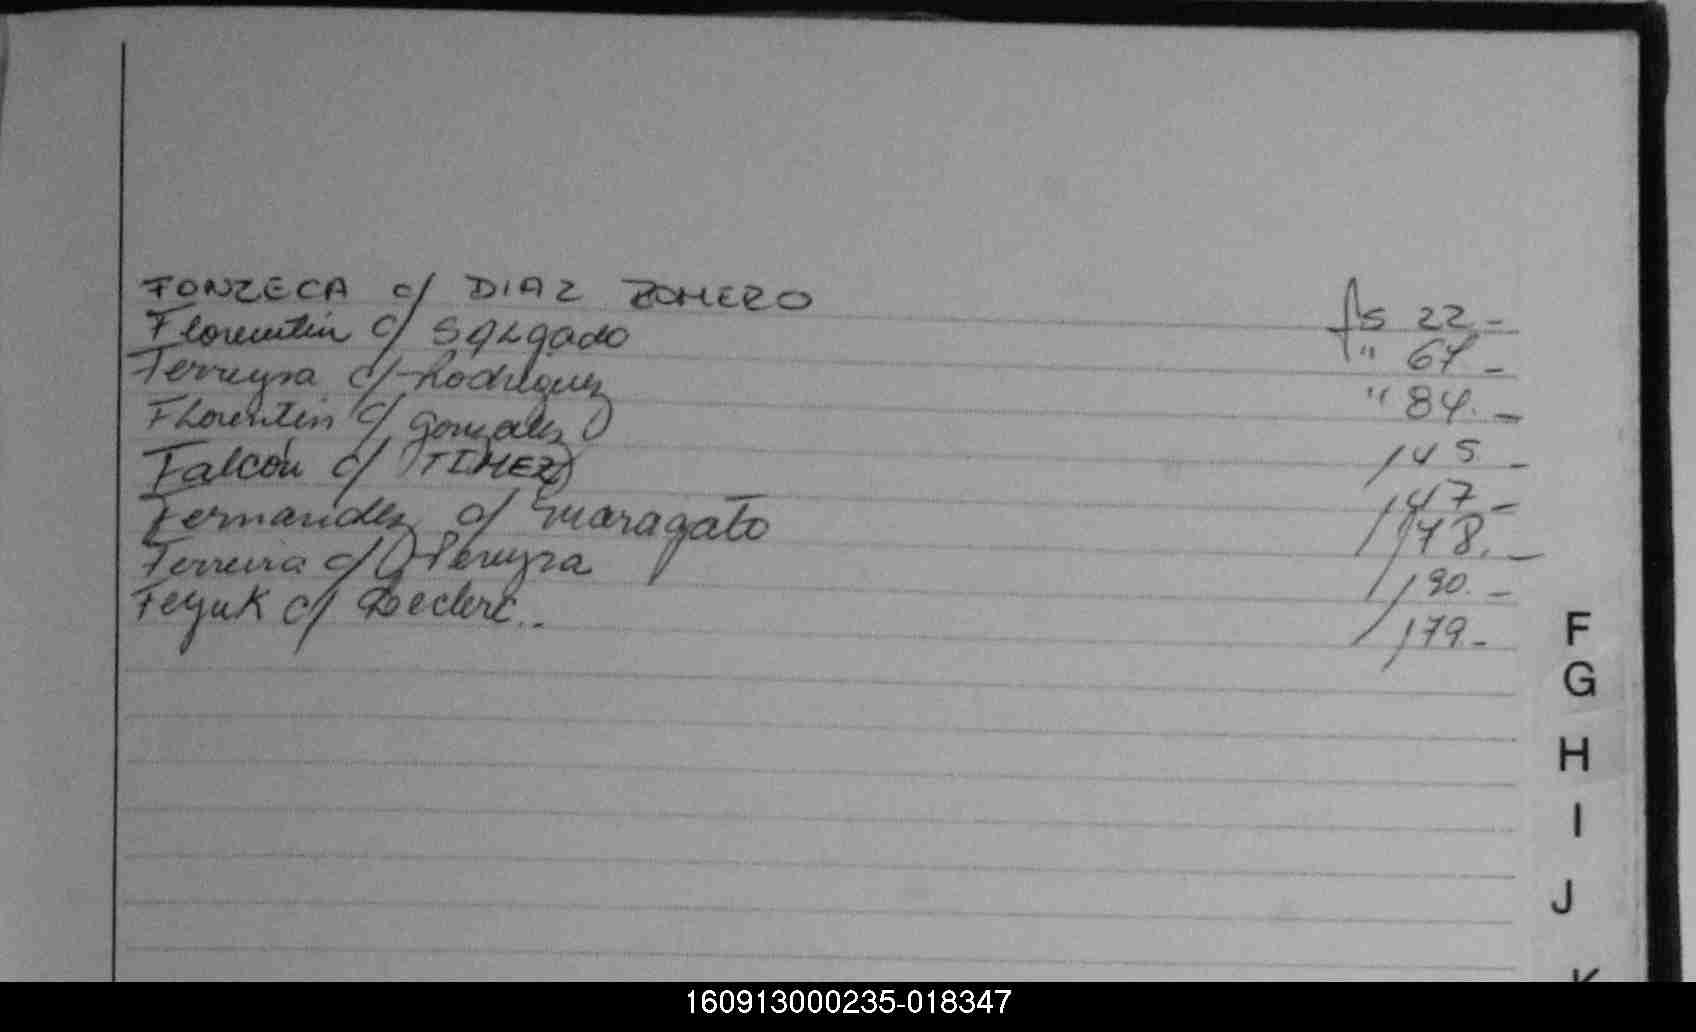 FONZECA c/ DIAZ ROMERO fs 22-
Florentin c/ SALgado " 67-
Ferreyra c/ Rodriguez " 84.-
Florentin c/ gonzalez 145-
Falcón c/ 147-
Fernandez c/ maragato 178.-
Ferreira c/ Pereyra 190.-
Feyuk c/ Leclerc.. 179.-
F
G
H
I
J
K
160913000235-018347